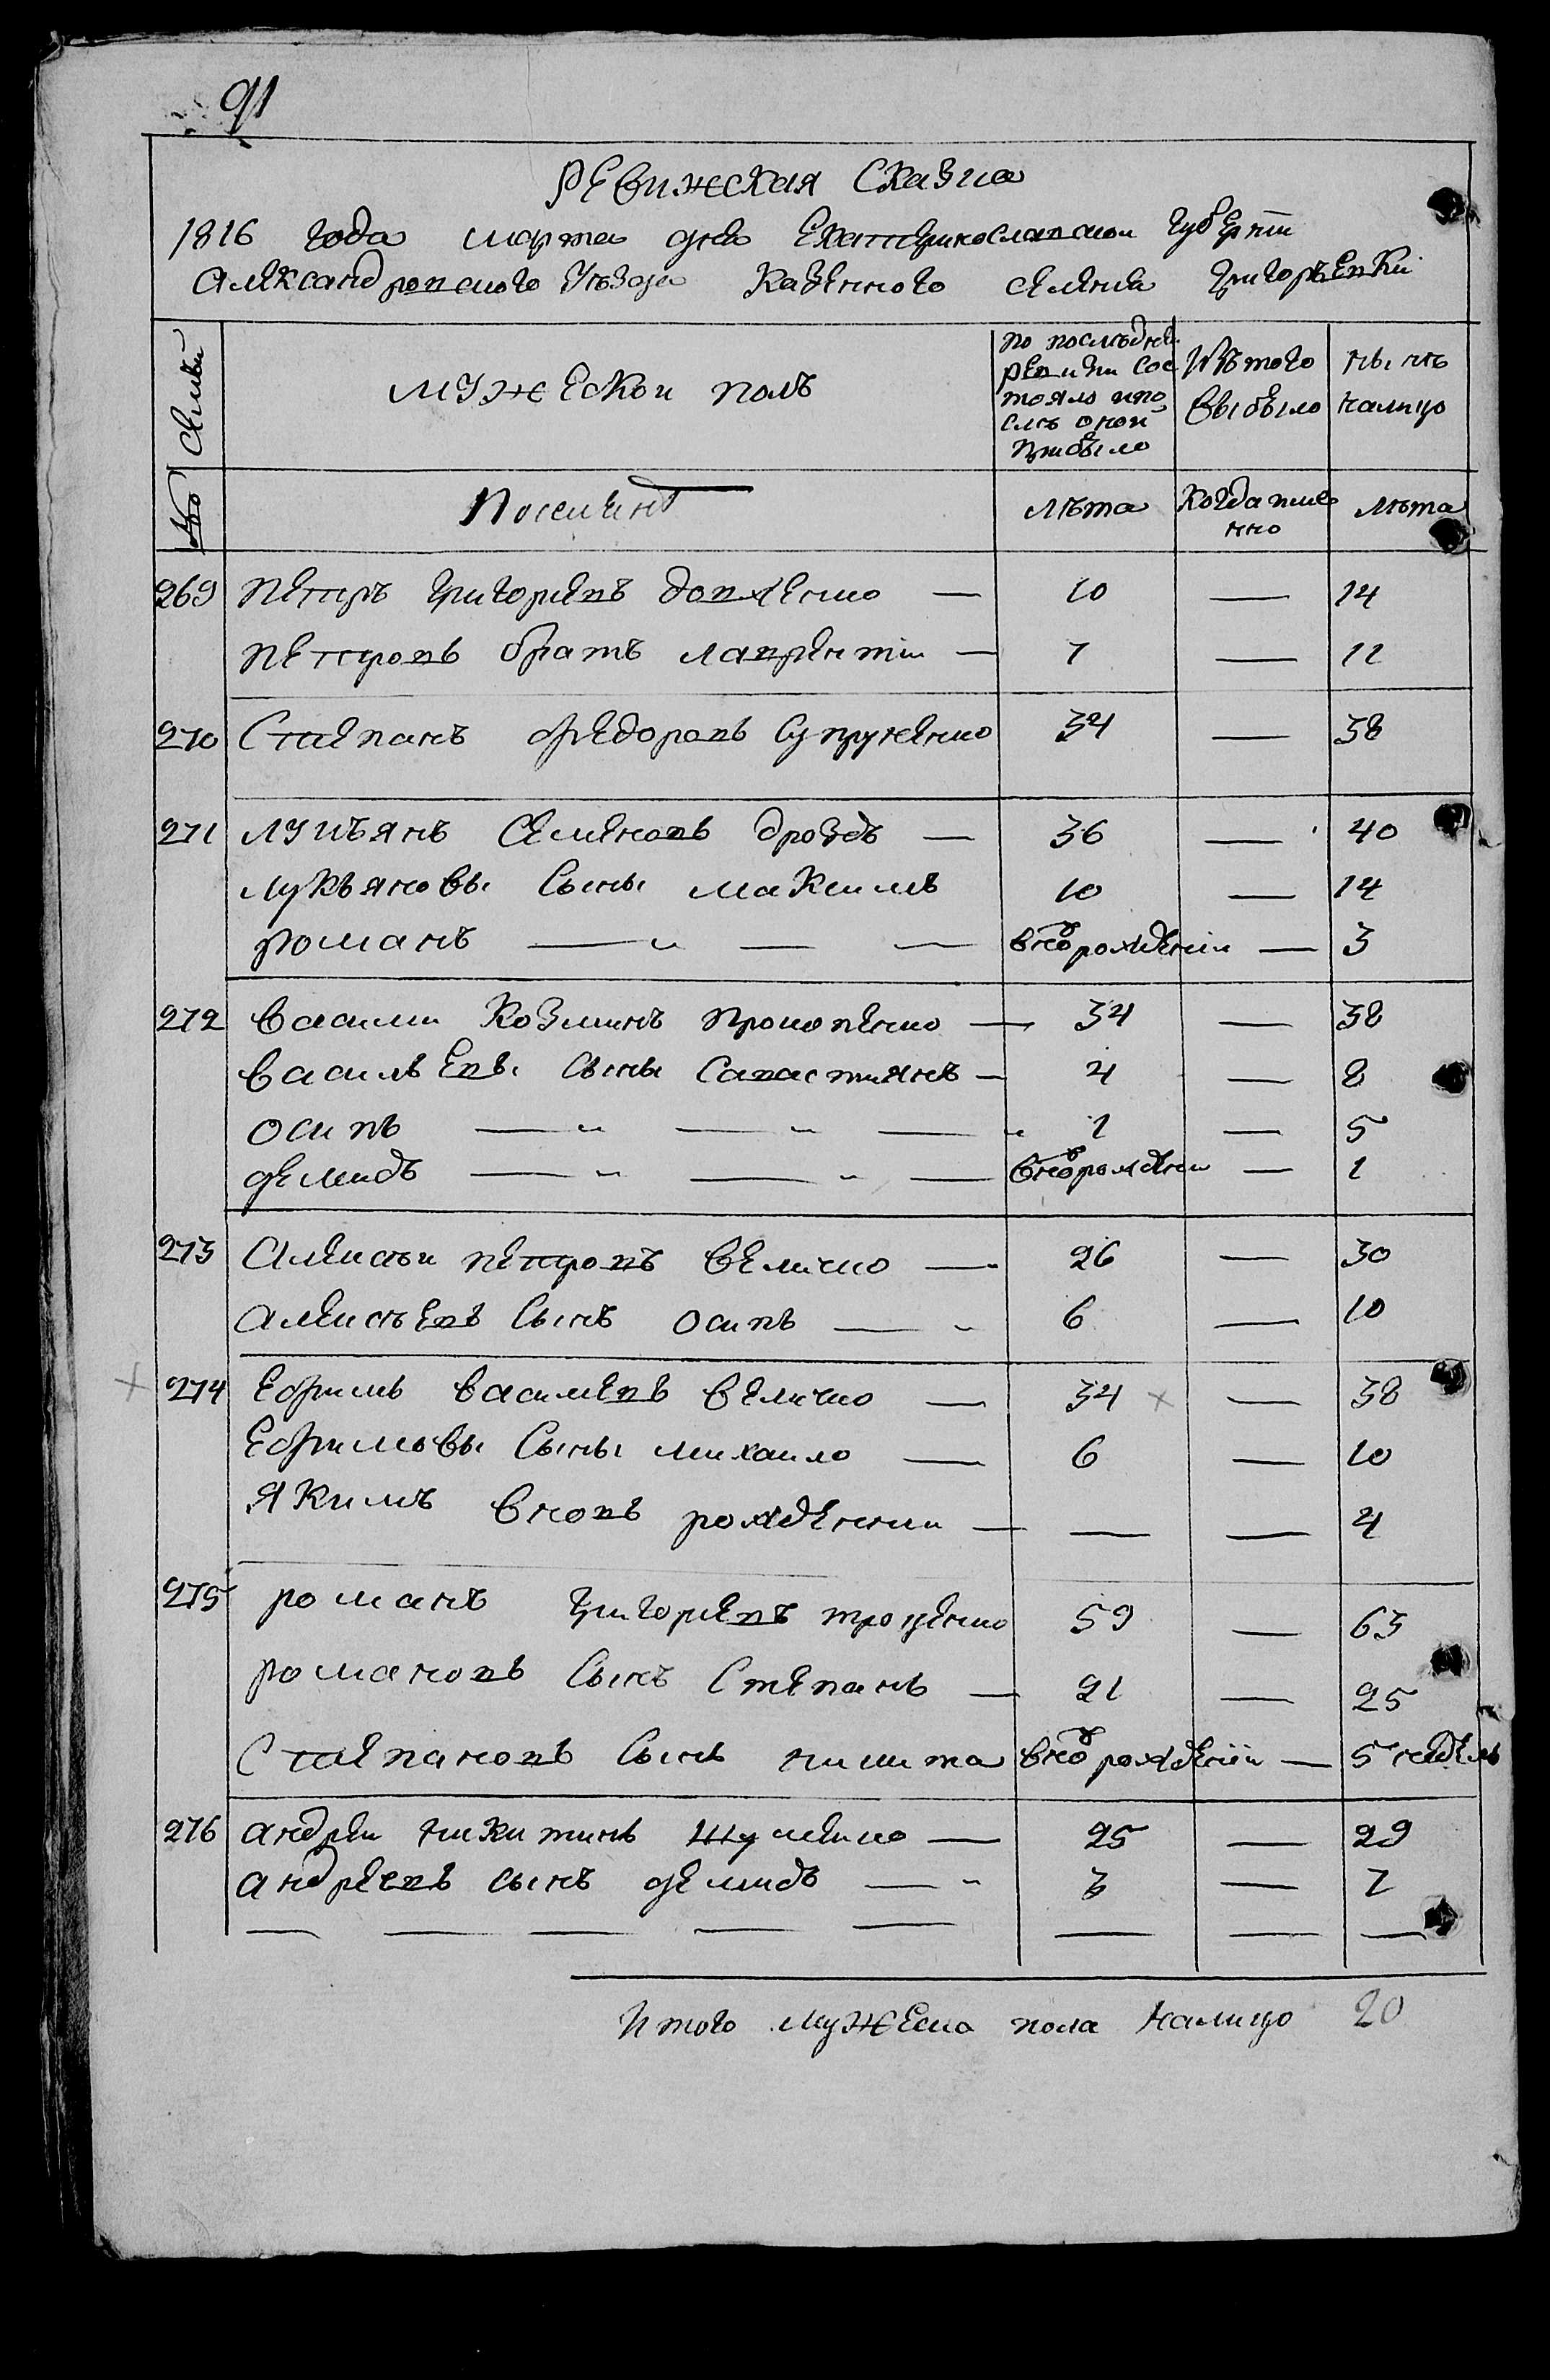 91
РЕвижская Сказка
1816 года марта дня Екатеринославской губерніи
Александровского Уѣзда Казенного селенія Григорьевки
№о Семьи
мужеской полъ
по послѣдней ревизіи состояло ипослѣ оной прибыло
Изъ того выбыло
нынѣ налицо
Поселянѣ
лѣта
Когда именно
лѣта
269 петръ григориевъ довженко — 10 — 14
петровъ братъ лаврентіи — 7 — 11
270 Степанъ федоровъ Супруненко 34 — 38
271 лукъянъ Семеновъ дроздъ — 36 — 40
лукъяновы Сыны максимъ 10 — 14
романъ — „ — — вновь рожденіи — 3
272 василии Козминъ прокопенко — 34 — 38
васильевы Сыны Савастиянъ — 4 — 8
осипъ — „ — „ — „ 1 — 5
демидъ — „ — „ — вновь рожденіи — 1
273 алексѣи петровъ величко — 26 — 30
алексѣевъ Сынъ осипъ — „ 6 — 10
274 Ефимъ василиевъ величко — 34 — 38
Ефимовы Сыны михаило — 6 — 10
якимъ вновь рожденнии — — — 4
275 романъ григориевъ троценко 59 — 63
романовъ Сынъ Степанъ — 21 — 25
Степановъ Сынъ никита вновь рожденіи — 5 недель
276 андреи никитинъ Шулейко — 25 — 29
андреевъ сынъ демидъ — „ 3 — 7
— — — — — — — —
Итого мужеска пола налицо 20